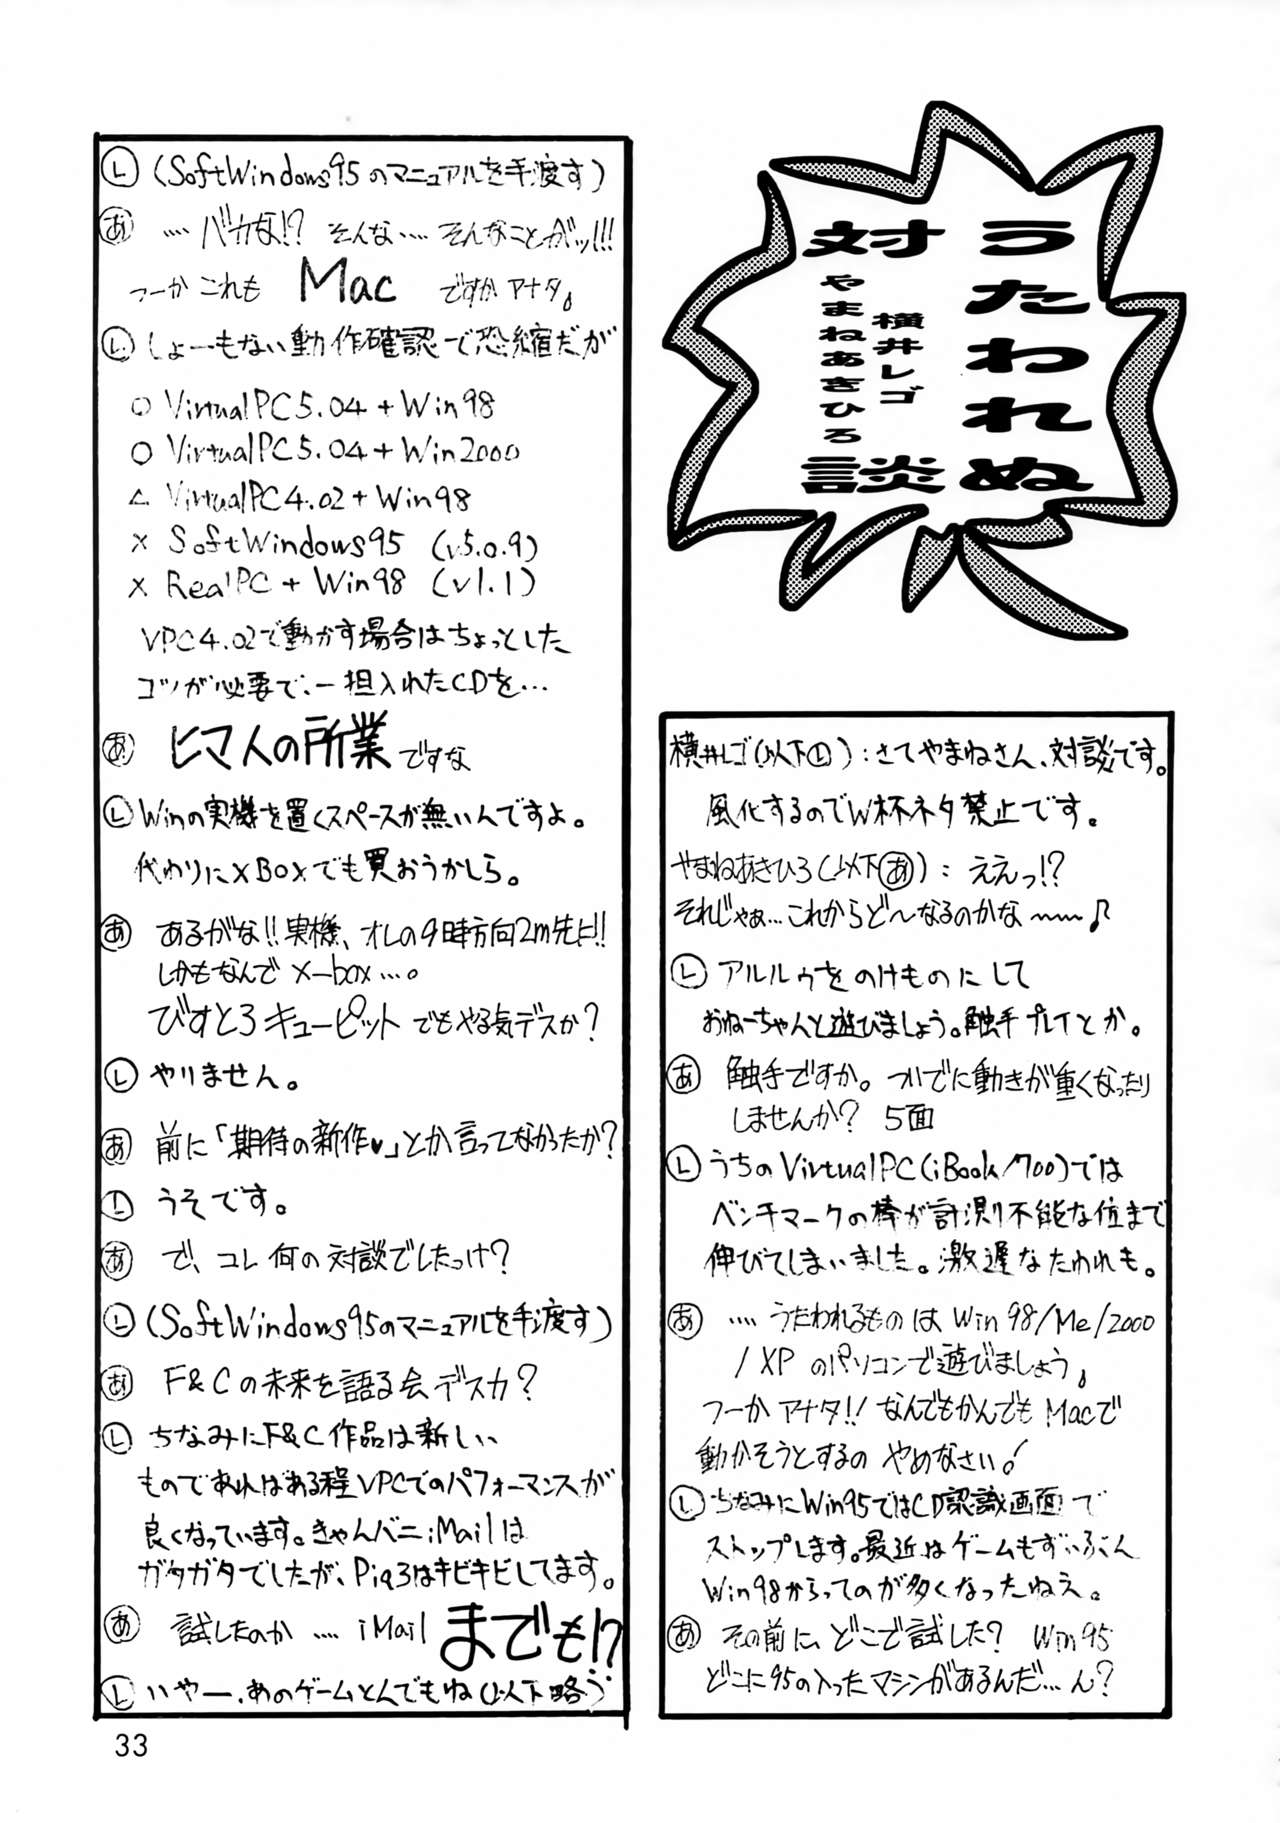 うたわれぬ
対談
横井レゴ
やまねあきひろ
横井レゴ(以下Ⓛ):さてやまねさん、対談です。
風化するのでW杯ネタ禁止です。
やまねあきひろ(以下あ): ええっ!?
それじゃぁ…これからど〜なるのかな〜〜〜♪
Ⓛ アルルゥをのけものにして
おねーちゃんと遊びましょう。触手プレイとか。
あ 触手ですか。ついでに動きが重くなったり
しませんか? 5面
Ⓛ うちのVirtualPC(iBook/700)では
ベンチマークの棒が計測不能な位まで
伸びてしまいました。激遅なたわれも。
あ ‥‥うたわれるものは Win 98/Me/2000
/XP のパソコンで遊びましょう。
つーか アナタ!! なんでもかんでも Macで
動かそうとするの やめなさい!
Ⓛ ちなみにWin95ではCD認識画面で
ストップします。最近はゲームもずいぶん
Win98からってのが多くなったねえ。
あ その前に、どこで試した? Win95
どこに95の入ったマシンがあるんだ…ん?
Ⓛ (SoftWindows95のマニュアルを手渡す)
あ ‥‥バカな!? そんな‥‥そんなことがッ!!!
つーか これも Mac ですか アナタ。
Ⓛ しょーもない動作確認で恐縮だが
○ VirtualPC5.04+Win98
○ VirtualPC5.04+Win2000
△ VirtualPC4.02+Win98
× SoftWindows95 (v5.0.9)
× RealPC+Win98 (v1.1)
VPC4.02で動かす場合はちょっとした
コツが必要で、一担入れたCDを…
あ ヒマ人の所業ですな
Ⓛ Winの実機を置くスペースが無いんですよ。
代わりにXBoxでも買おうかしら。
あ あるがな!!実機、オレの9時方向2m先に!!
しかもなんで X-box‥‥。
びすとろキューピット でもやる気デスか?
Ⓛ やりません。
あ 前に「期待の新作♥」とか言ってなかったか?
Ⓛ うそです。
あ で、コレ何の対談でしたっけ?
Ⓛ (SoftWindows95のマニュアルを手渡す)
あ F&Cの未来を語る会デスカ?
Ⓛ ちなみにF&C作品は新しい
ものであればある程VPCでのパフォーマンスが
良くなっています。きゃんバニiMailは
ガタガタでしたが、Pia3はキビキビしてます。
あ 試したのか ‥‥ iMail までも!?
Ⓛ いやー、あのゲームとんでもね(以下略)
33